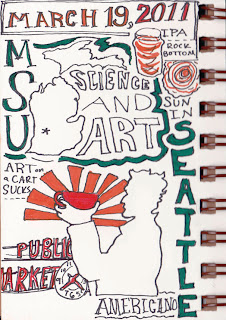 MARCH 19, 2011
MSU
IPA
ROCK
BOTTOM
SCIENCE
AND
ART
SUN
IN
SEATTLE
ART on
a CART
SUCKS
PUBLI
ARKET
AMERICANO